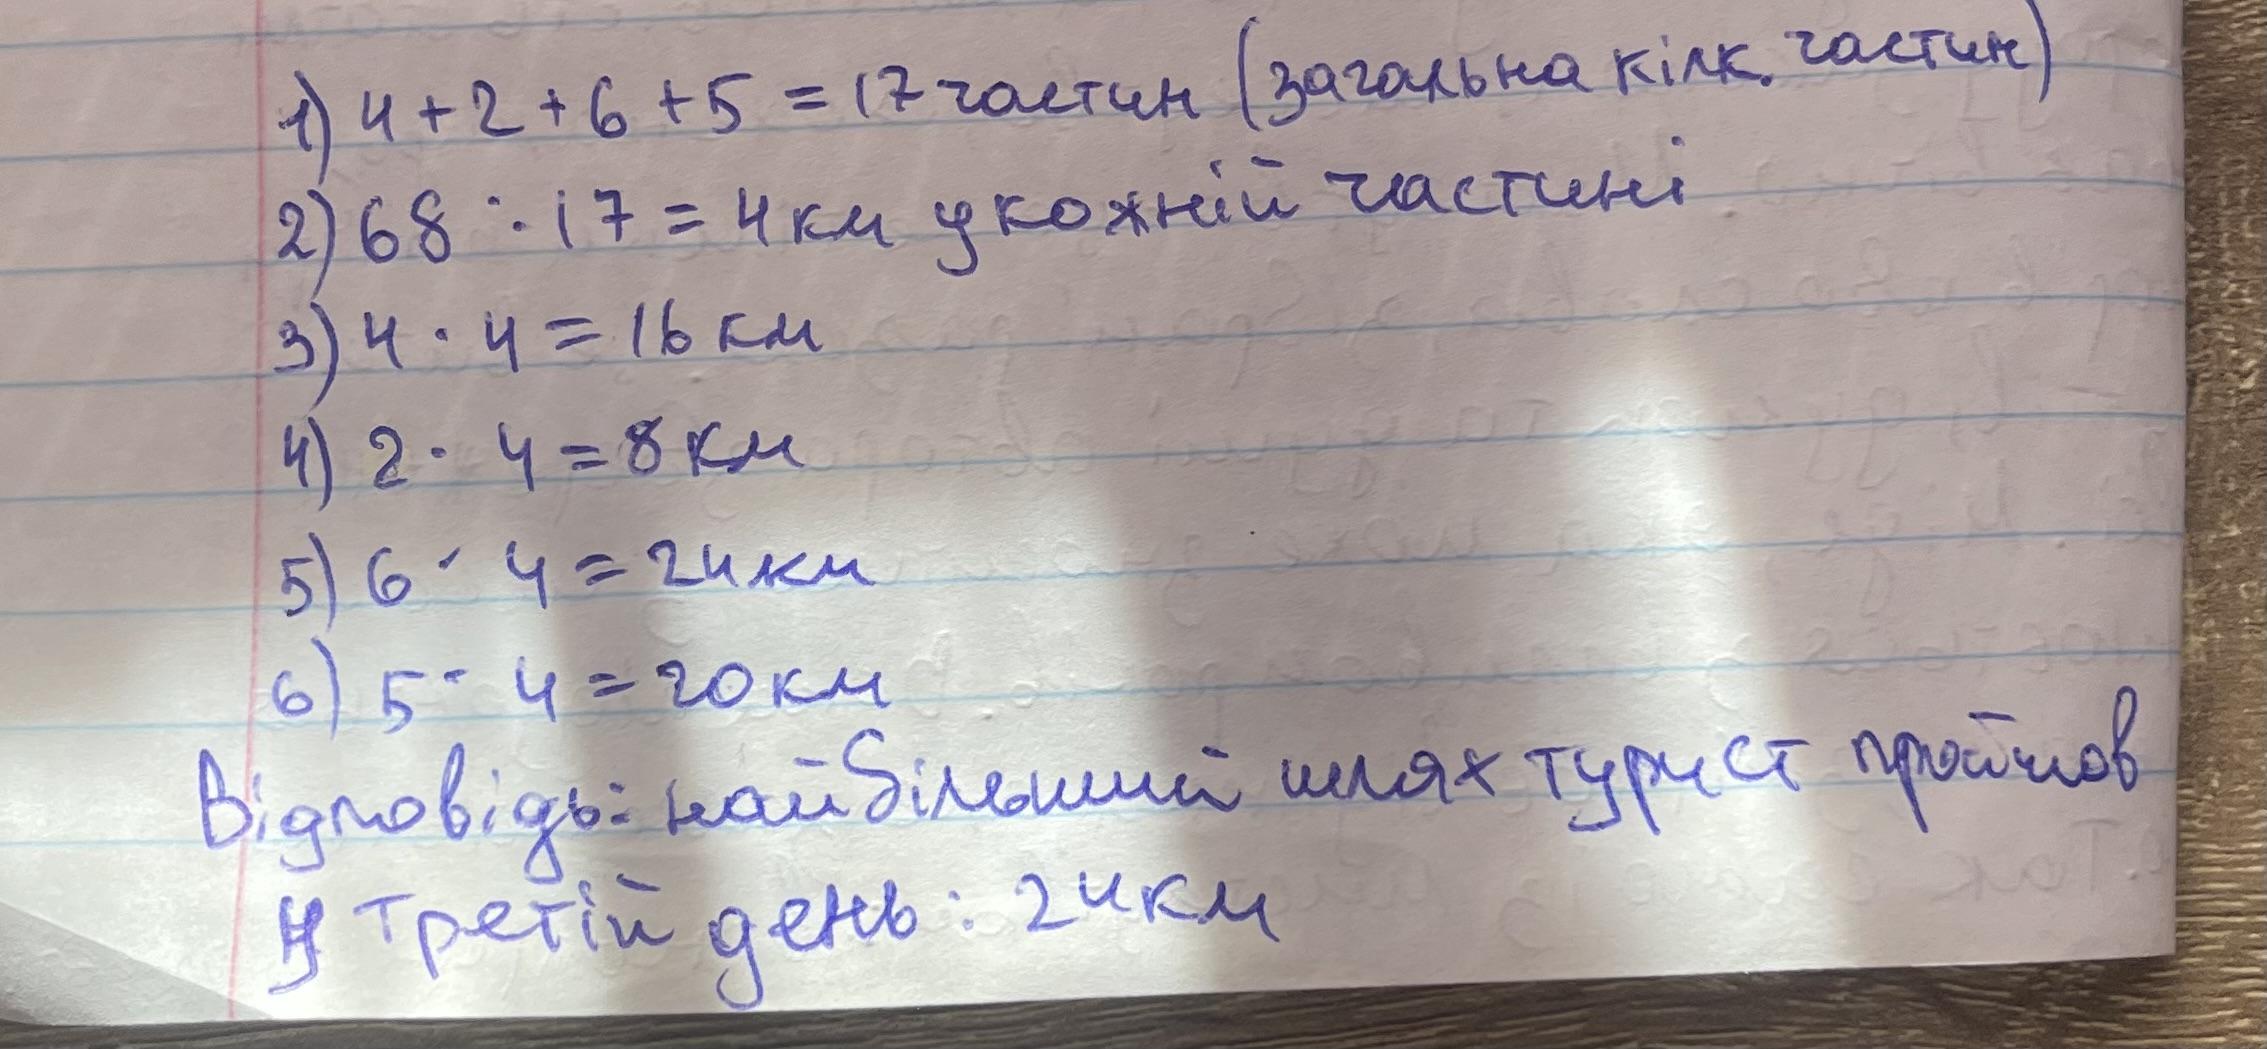 1) 4 + 2 + 6 + 5 = 17 частин (загальна кілк. частин)
2) 68 : 17 = 4 км у кожній частині
3) 4 · 4 = 16 км
4) 2 · 4 = 8 км
5) 6 · 4 = 24 км
6) 5 · 4 = 20 км
Відповідь: найбільший шлях турист пройшов
у третій день: 24 км